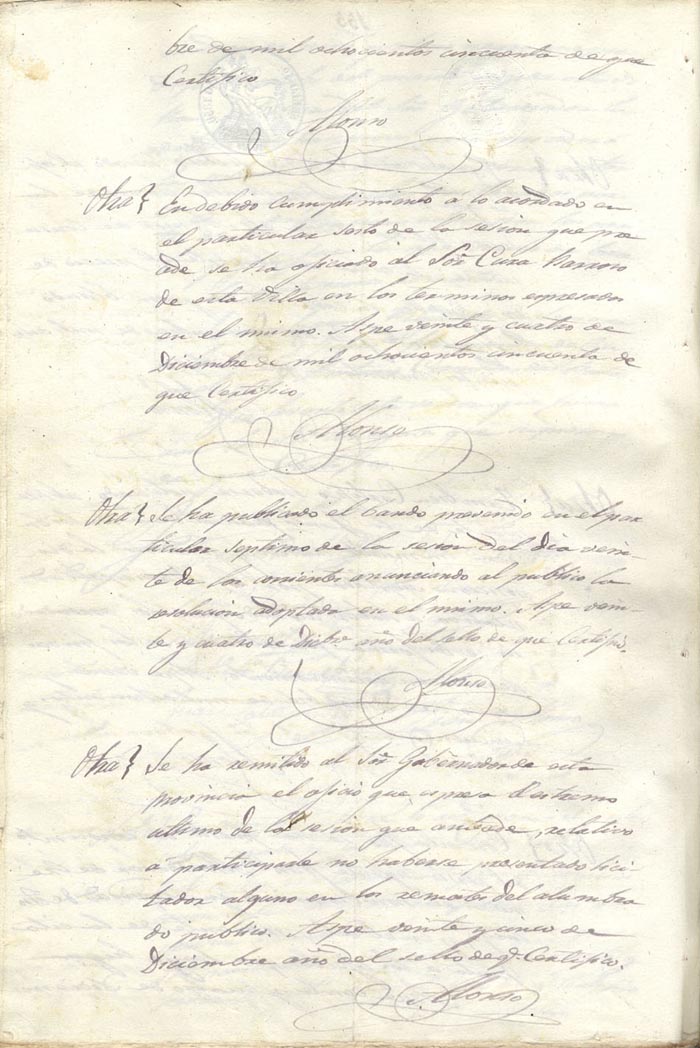 bre de mil ochocientos cincuenta de que
Certifico
Alonso
Otra} En debido cumplimiento a lo acordado en
el particular sesto de la sesion que pre
cede, se ha oficiado al Sor. Cura Parroco
de esta Villa en los terminos espresados
en el mismo. Aspe veinte y cuatro de
Diciembre de mil ochocientos cincuenta de
que Certifico
Alonso
Otra} Se ha publicado el bando prevenido en el par
ticular septimo de la sesion del dia vein-
te de los corrientes anunciando al publico la
resolucion adoptada en el mismo. Aspe vein-
te y cuatro de Dicbre. año del sello de que Certifico.
Alonso
Otra} Se ha remitido al Sor. Gobernador de esta
provincia el oficio que espresa el estremo
ultimo de la sesion que antecede, relativo
a participarle no haberse presentado lici-
tador alguno en los remates del alumbra
do publico. Aspe veinte y cinco de
Diciembre año del sello de q. Certifico.
Alonso